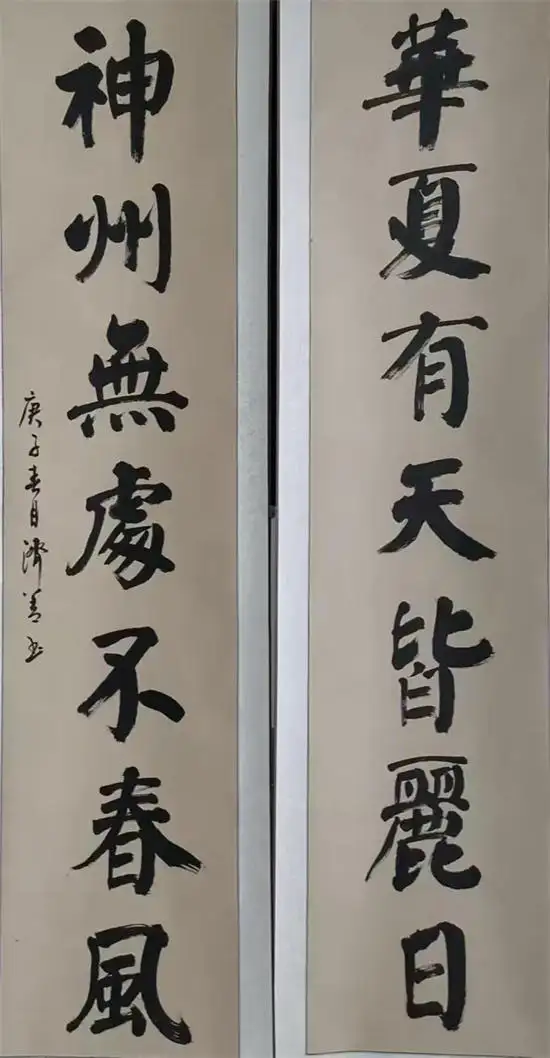 華夏有天皆麗日
神州無處不春風
庚子春月濟善书